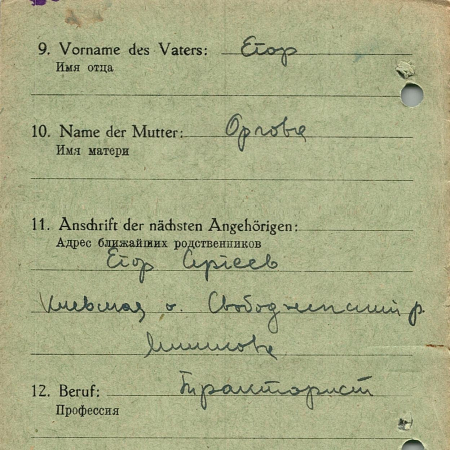 9. Vorname des Vaters: Егор
Имя отца
10. Name der Mutter: Орлова
Имя матери
11. Anschrift der nächsten Angehörigen:
Адрес ближайших родственников
Егор Сергеев
о.
12. Beruf: Тракторист
Профессия